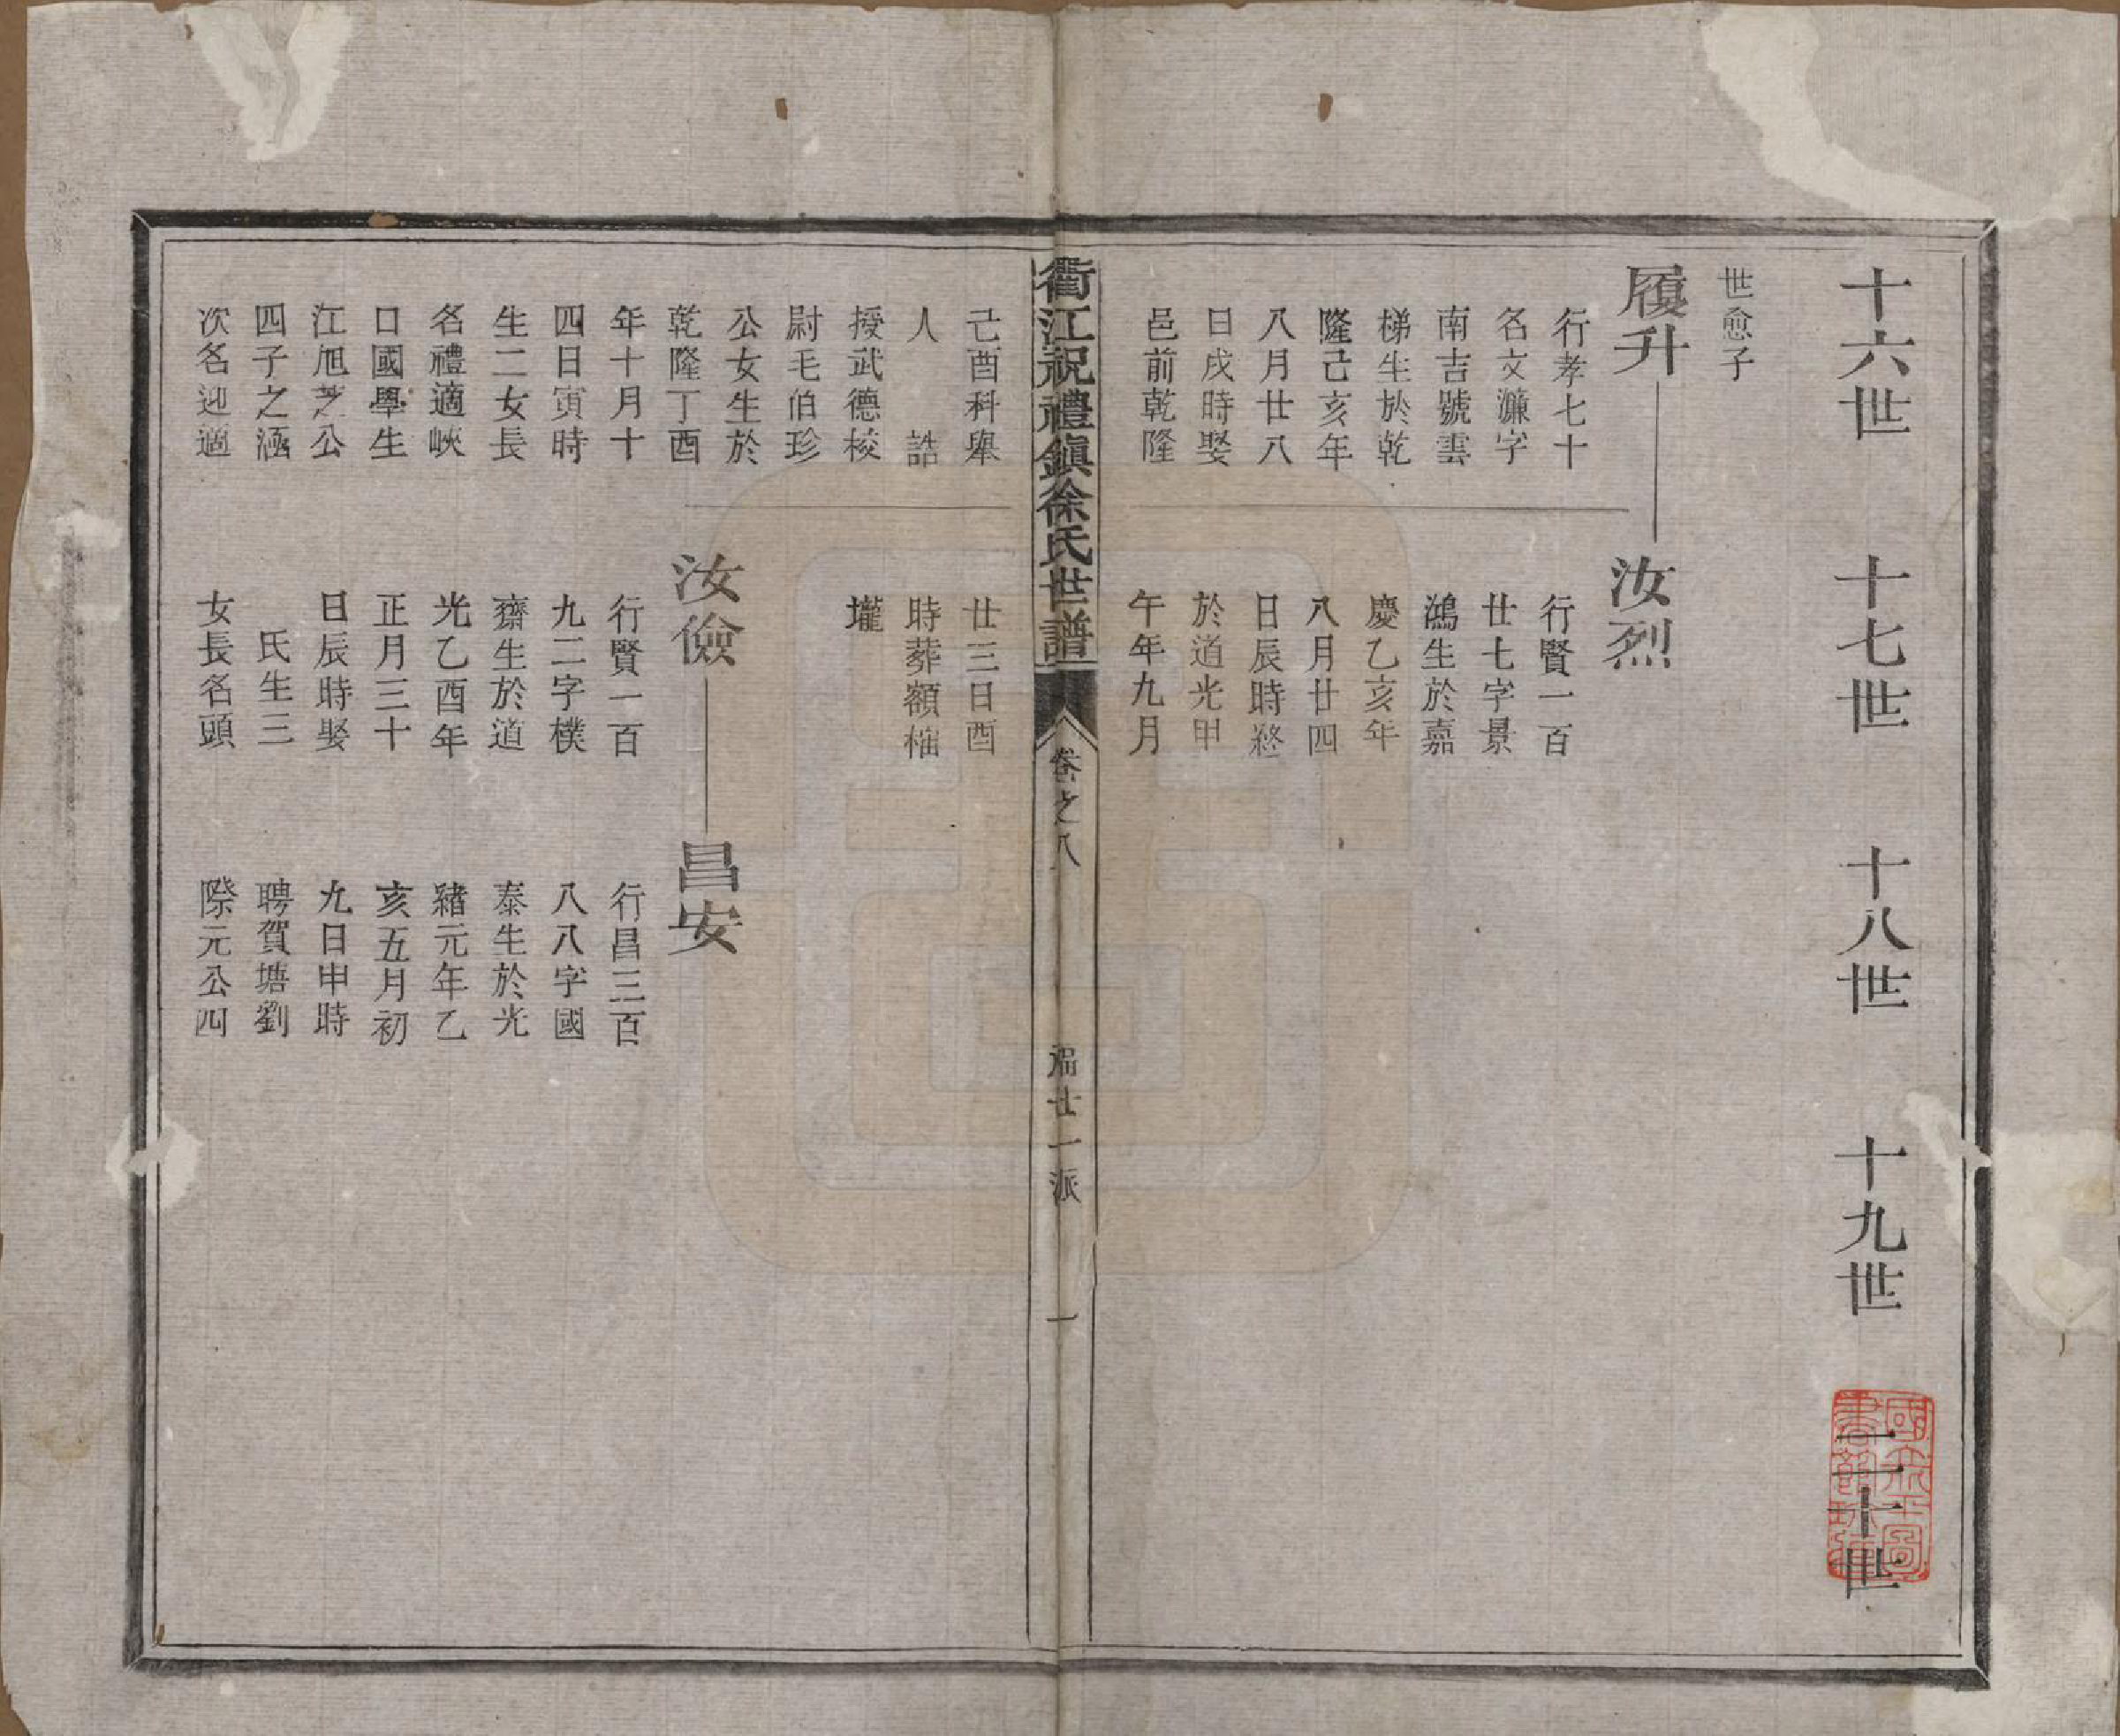 十六世
十七世
十八世
十九世
二十世
世愈子
履升
行孝七十
名文濂字
南吉號雲
梯生於乾
隆己亥年
八月廿八
日戌時娶
邑前乾隆
己酉科舉
人 誥
授武德校
尉毛伯珍
公女生於
乾隆丁酉
年十月十
四日寅時
生二女長
名禮適峽
口國學生
江旭芝公
四子之涵
次名迎適
汝烈
行賢一百
廿七字景
鴻生於嘉
慶乙亥年
八月廿四
日辰時終
於道光甲
午年九月
廿三日酉
時葬額楮
壠
汝儉
行賢一百
九二字樸
齋生於道
光乙酉年
正月三十
日辰時娶
氏生三
女長名頭
昌安
行昌三百
八八字國
泰生於光
緒元年乙
亥五月初
九日申時
聘賀塘劉
際元公四
衢江祝禮鎮徐氏世譜
卷之八
福廿一派
一